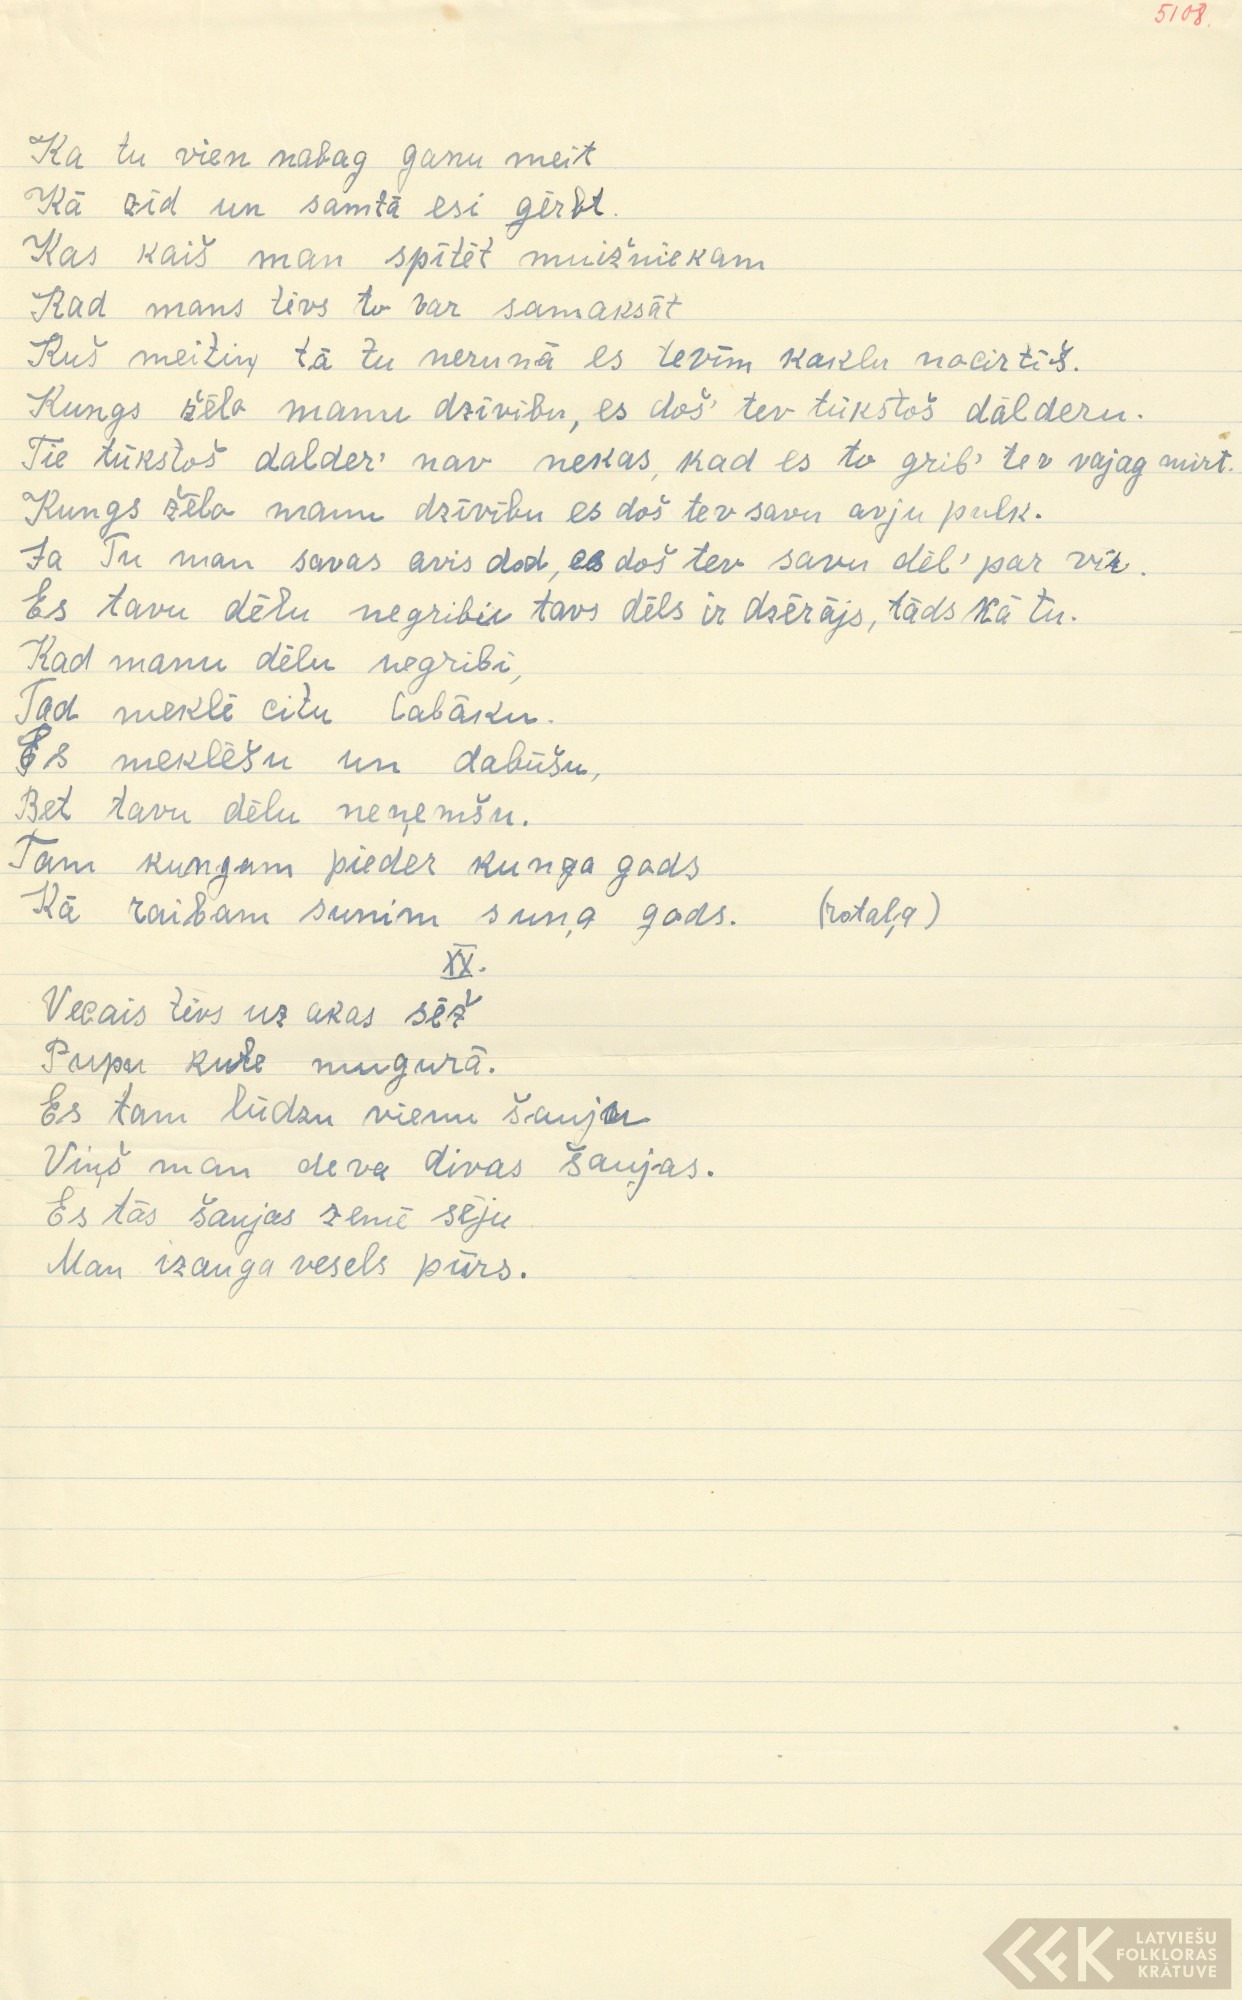 5108.
Ka tu vien nabag ganu meit
Kā zīd un samtā esi gērbt.
Kas kaiš man spītēt muižniekam
Kad mans tēvs to var samaksāt
Kuš meitiņ tā tu nerunā es tevīm kaklu nocirtīš.
Kungs žēlo manu dzīvību, es doš' tev tūkstoš dālderu.
Tie tūkstoš dalder' nav nekas, kad es to grib' tev vajag mirt.
Kungs žēlo manu dzīvību es doš tev savu avju pulk.
Ja Tu man savas avis dod, es doš tev savu dēl' par vīr.
Es tavu dēlu negribu tavs dēls ir dzērājs, tāds kā tu.
Kad manu dēlu negribi,
Tad meklē citu labāku.
Es meklēšu un dabūšu,
Bet tavu dēlu neņemšu.
Tam kungam pieder kunga gods
Kā raibam sunim suņa gods. (rotaļa)
XX.
Vecais tēvs uz akas sēž
Pupu kule mugurā.
Es tam lūdzu vienu šauju
Viņš man deva divas šaujas.
Es tās šaujas zemē sēju
Man izauga vesels pūrs.
LATVIEŠU
FOLKLORAS
KRĀTUVE